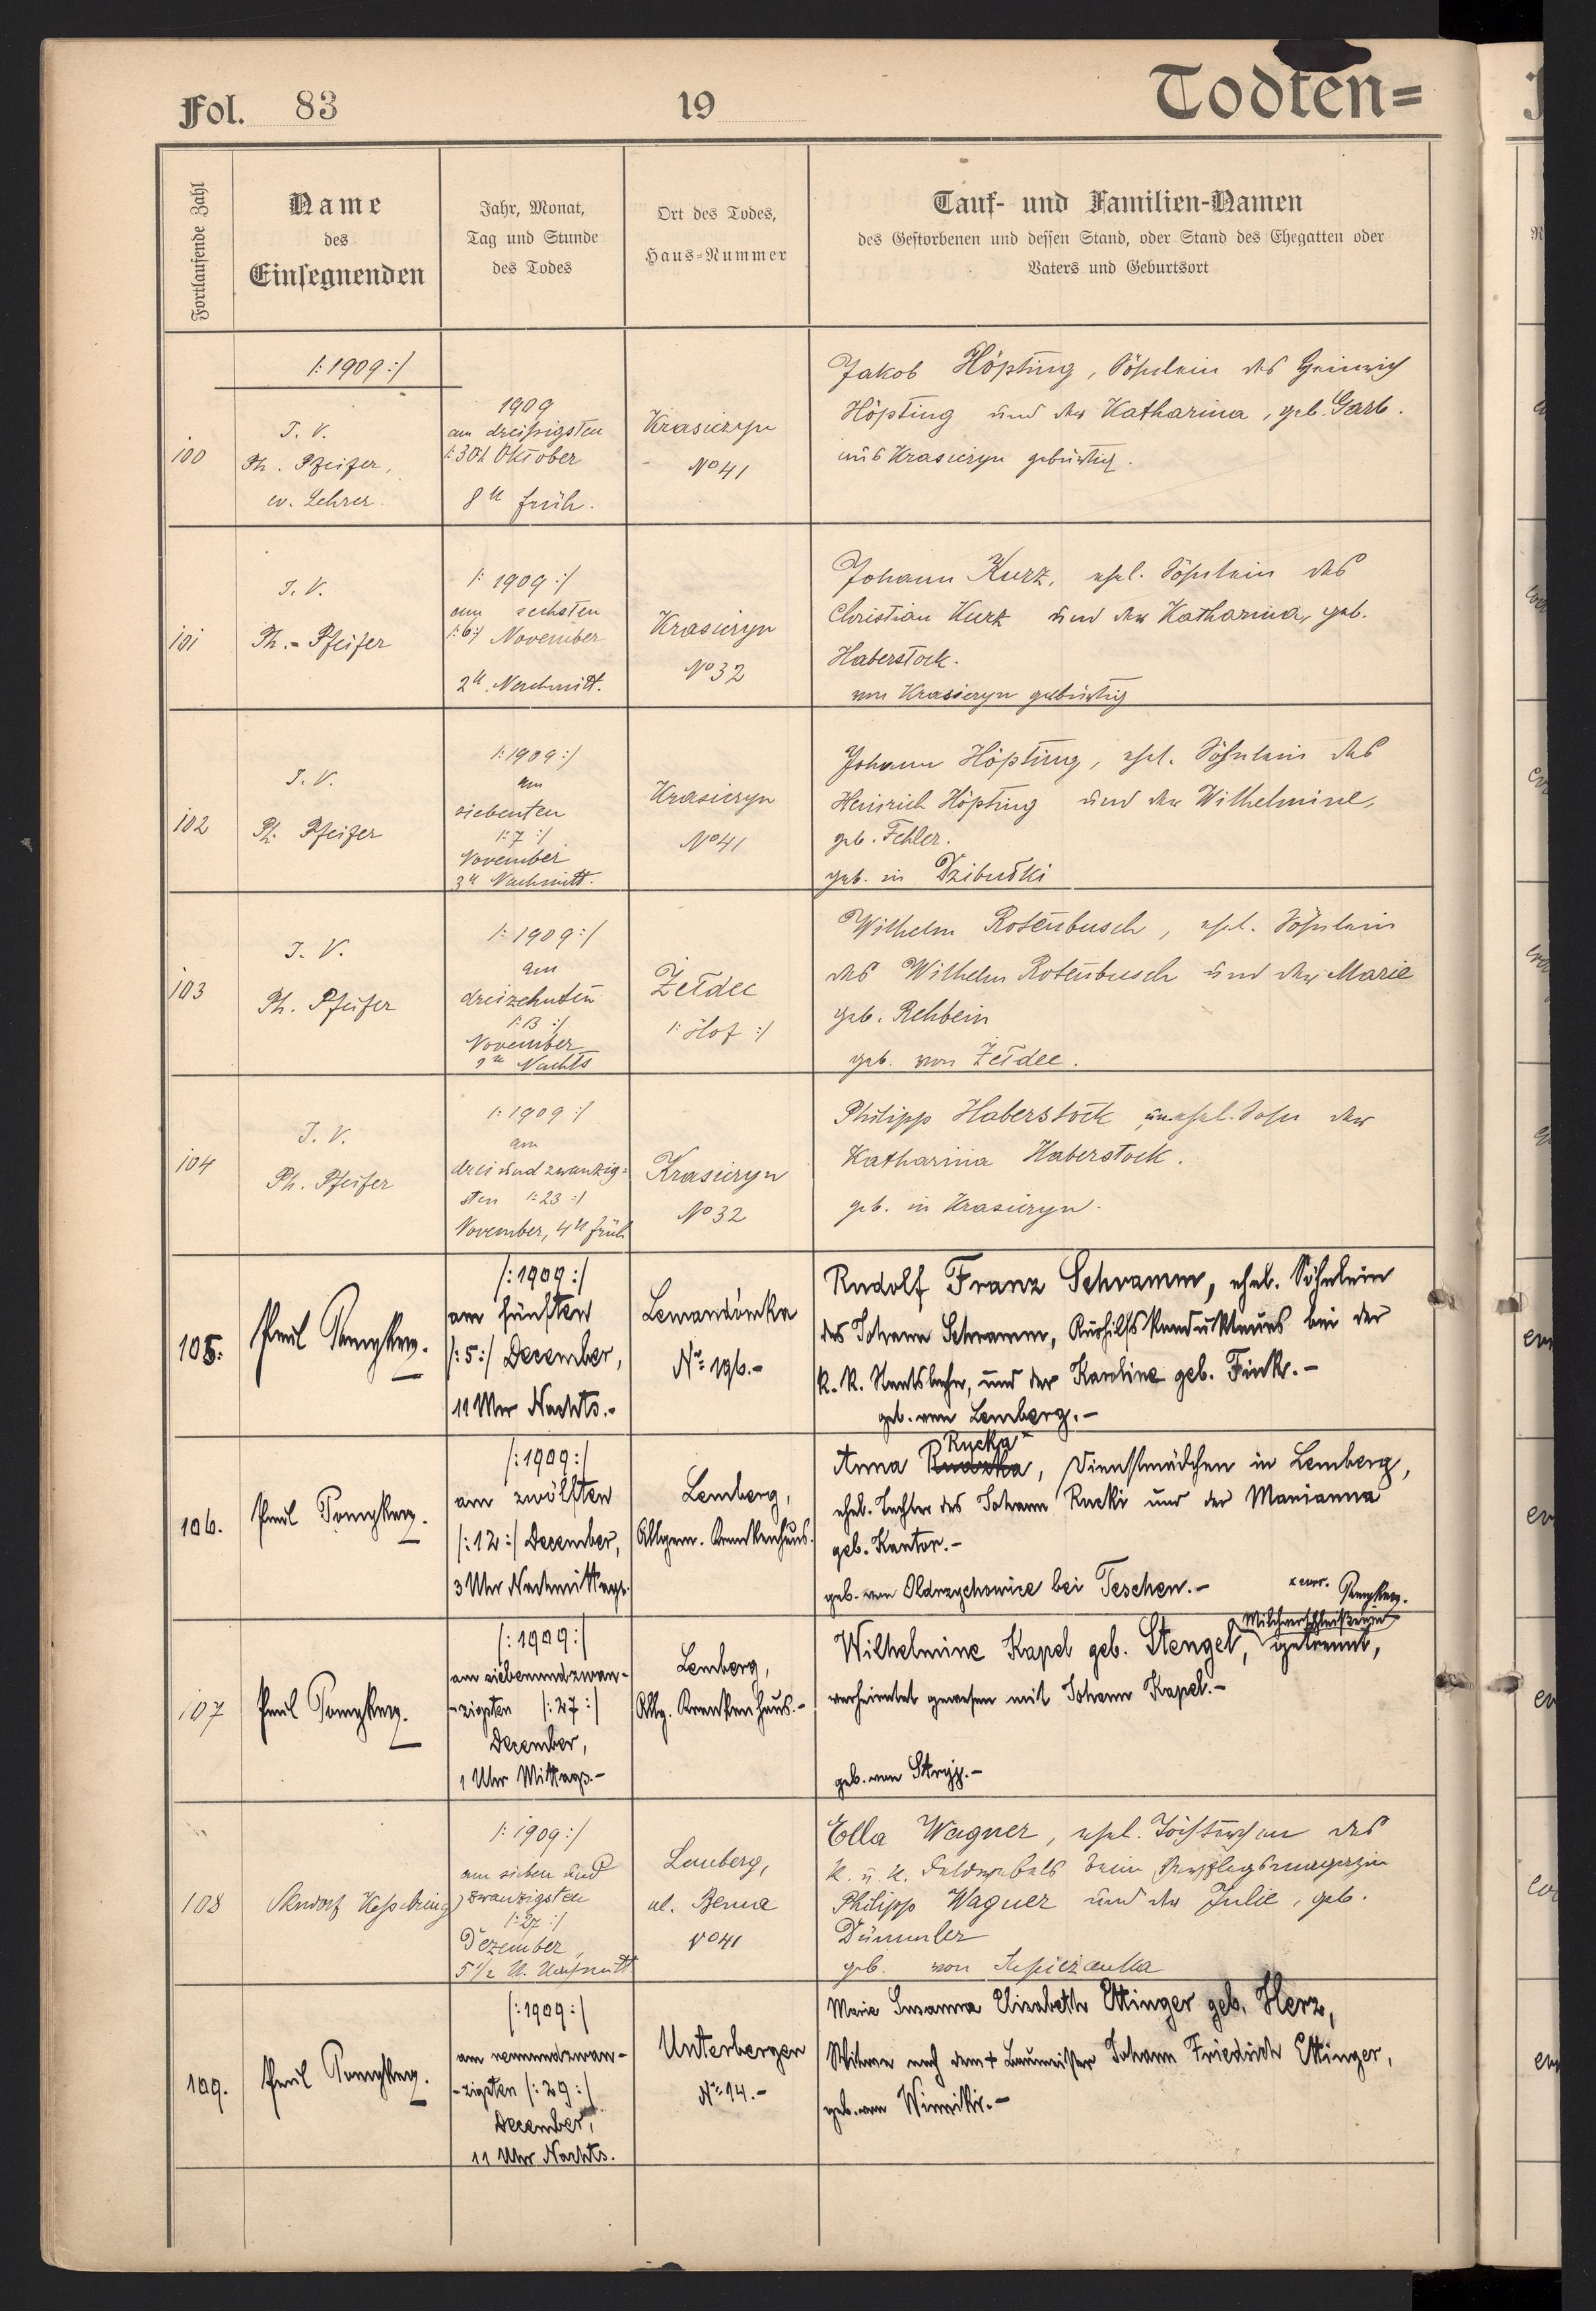 Fol. 83
19
Todten=
Fortlaufende Zahl
Name
des
Einsegnenden
Jahr, Monat,
Tag und Stunde
des Todes
Ort des Todes,
Haus-Nummer
Tauf- und Familien-Namen
des Gestorbenen und dessen Stand, oder Stand des Ehegatten oder
Vaters und Geburtsort
/: 1909 :/
100
I. V.
Ph. Pfeifer,
ev. Lehrer.
1909
am dreißigsten
/: 30 :/ Oktober
8 u früh.
Krasiczyn
No 41
Jakob Höpfing, Söhnlein des Heinrich
Höpfing und der Katharina, geb. Garb.
aus Krasiczyn gebürtig.
101
I. V.
Ph. Pfeifer
/: 1909 :/
am sechsten
/: 6 :/ November
2 u. Nachmitt.
Krasiczyn
No 32
Johann Kurz, ehel. Söhnlein des
Christian Kurz und der Katharina, geb.
Haberstock.
von Krasiczyn gebürtig
102
I. V.
Ph. Pfeifer
/: 1909 :/
am
siebenten
/: 7 :/
November
3 u Nachmitt.
Krasiczyn
No 41
Johann Höpfing, ehel. Söhnlein des
Heinrich Höpfing und der Wilhelmine,
geb. Fehler.
geb. in Dzibułki
103
I. V.
Ph. Pfeifer
/: 1909 :/
am
dreizehnten
/: 13 :/
November
Nachts
Żełdec
/: Hof :/
Wilhelm Rotenbusch, ehel. Söhnlein
des Wilhelm Rotenbusch und der Marie
geb. Rehbein
geb. von Żełdec.
104
I. V.
Ph. Pfeifer
/: 1909 :/
am
drei und zwanzig=
sten /: 23 :/
November, 4 u früh
Krasiczyn
No 32
Philipp Haberstock, unehel. Sohn der
Katharina Haberstock.
geb. in Krasiczyn.
105.
Paul
/: 1909 :/
am fünften
/: 5 :/ December,
11 Uhr Nachts.-
Lewandówka
No 196.-
Rudolf Franz Schramm, ehel. Söhnlein
des Johann Schramm, Aushilfskondukteurs bei der
k. k. Staatsbahn, und der Karoline geb. Fink.-
geb. von Lemberg.-
106.
Paul
/: 1909 :/
am zwölften
/: 12 :/ December,
3 Uhr Nachmittags.
Lemberg,
Allgem. Krankenhaus.
Rucka x
Anna, Dienstmädchen in Lemberg,
ehel. Tochter des Johann Rucki und der Marianna
geb. Kantor.-
geb. von Oldrzychowice bei Teschen.-
x corr.
107
Paul
/: 1909 :/
am siebenundzwan-
-zigsten /: 27 :/
December,
1 Uhr Mittags.-
Lemberg,
Allg. Krankenhaus.-
Milchverschleißerin
Wilhelmine Kapel geb. Stengel, getrennt,
verheiratet gewesen mit Johann Kapel.-
geb. von Stryj.-
108
/: 1909 :/
am sieben und
zwanzigsten
/: 27 :/
Dezember,
5 1/2 U. Nachmitt.
Lemberg,
ul. Bema
No 41
Ella Wagner, ehel. Töchterchen des
k. u. k. Feldwebels beim Verpflegsmagazin
Philipp Wagner und der Julie, geb.
Dümmler
geb. von
109.
Paul
/: 1909 :/
am neunundzwan-
-zigsten /: 29 :/
December,
11 Uhr Nachts.
Unterbergen
No 14.-
Maria Susanna Elisabeth Ettinger geb. Herz,
Witwe nach dem + Baumeister Johann Friedrich Ettinger,
geb. von Winniki.-